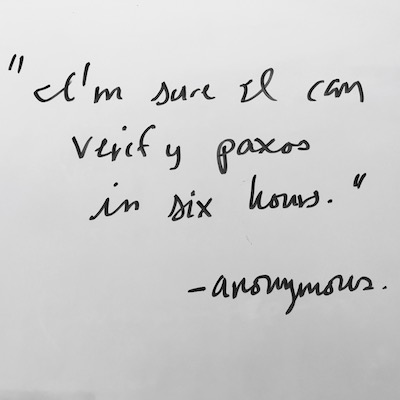 "I'm sure I can
verify paxos
in six hours."
-anonymous.